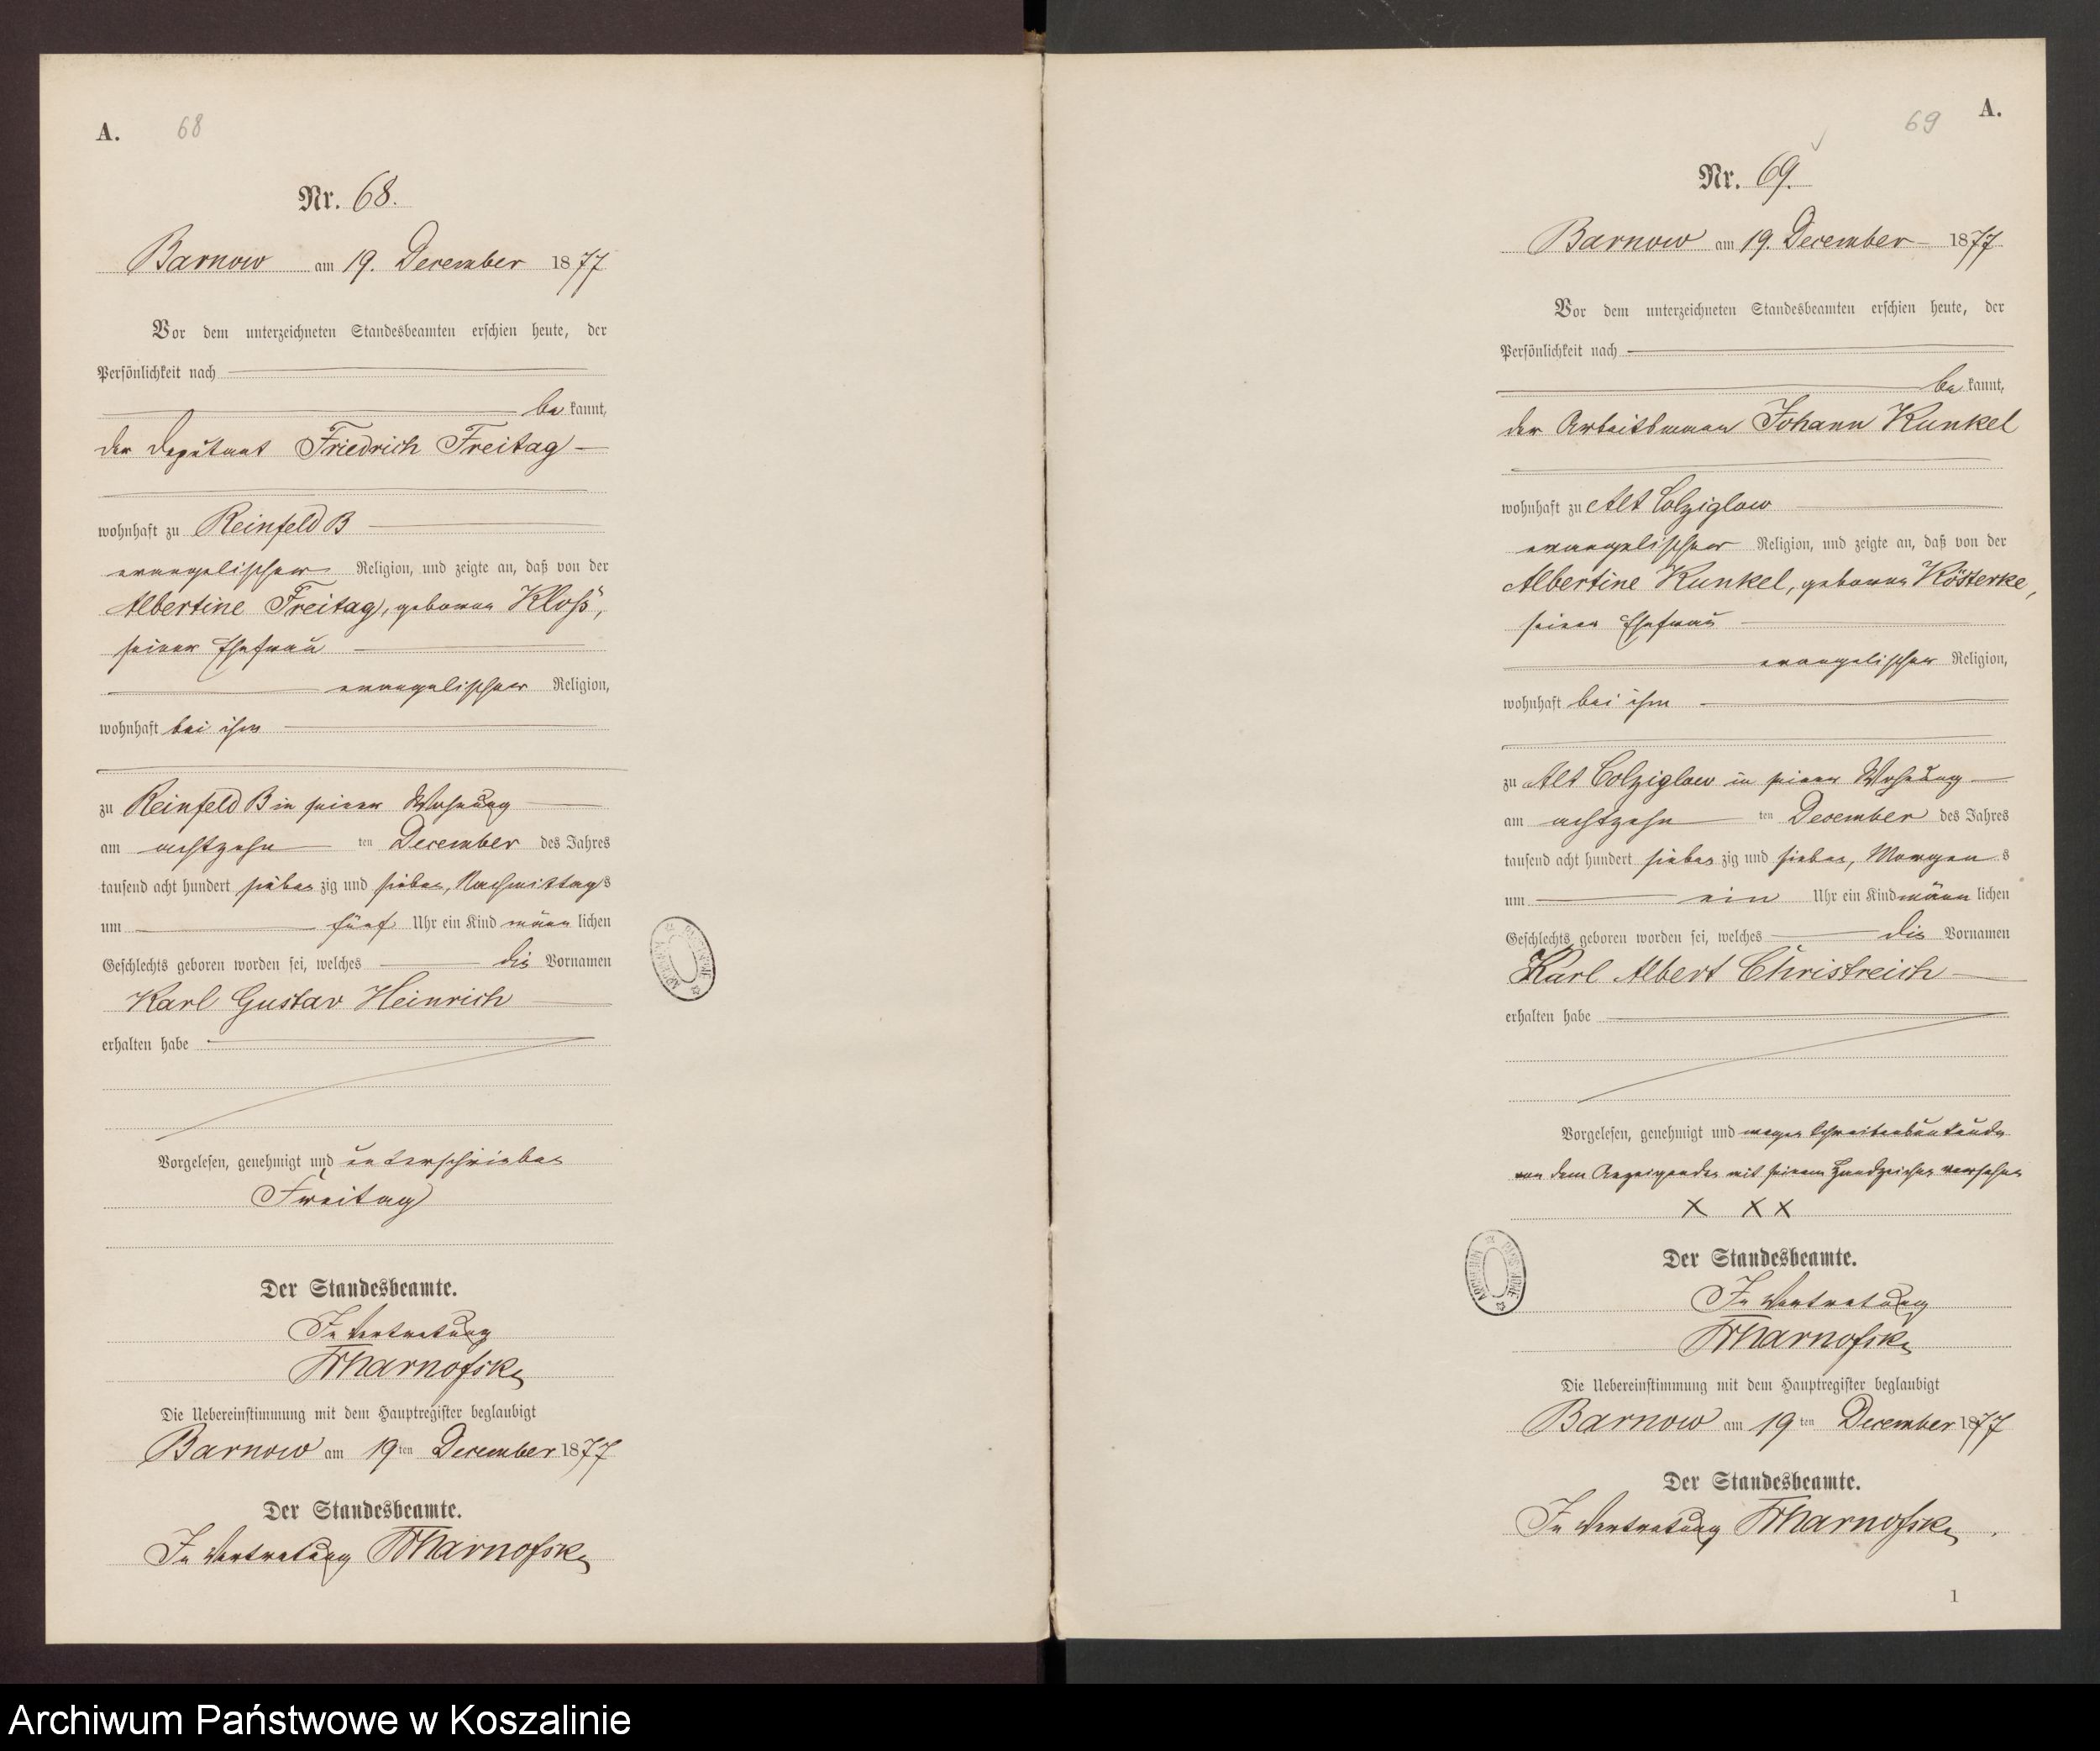 A.
68
Nr. 68.
Barnow am 19. December 1877
Vor dem unterzeichneten Standesbeamten erschien heute, der
Persönlichkeit nach
be kannt,
der Deputant Friedrich Freitag
wohnhaft zu Reinfeld B
evangelischer Religion, und zeigte an, daß von der
Albertine Freitag, geborne Kloß,
seiner Ehefrau
evangelischer Religion,
wohnhaft bei ihm
zu Reinfeld B in seiner Wohnung
am achtzehn ten December des Jahres
tausend acht hundert sieben zig und sieben, Nachmittags
um fünf Uhr ein Kind männ lichen
Geschlechts geboren worden sei, welches die Vornamen
Karl Gustav Heinrich
erhalten habe
Vorgelesen, genehmigt und unterschrieben
Freitag
Der Standesbeamte.
In Vertretung
Die Uebereinstimmung mit dem Hauptregister beglaubigt
Barnow am 19 ten December 1877
Der Standesbeamte.
In Vertretung
A.
69
Nr. 69.
Barnow am 19. December 1877
Vor dem unterzeichneten Standesbeamten erschien heute, der
Persönlichkeit nach
be kannt,
der Arbeitsmann Johann Kunkel
wohnhaft zu Alt Colziglow
evangelischer Religion, und zeigte an, daß von der
Albertine Kunkel, geborne Kösterke,
seiner Ehefrau
evangelischer Religion,
wohnhaft bei ihm
zu Alt Colziglow in seiner Wohnung
am achtzehn ten December des Jahres
tausend acht hundert sieben zig und sieben, Morgen s
um ein Uhr ein Kind männ lichen
Geschlechts geboren worden sei, welches die Vornamen
Karl Albert Christreich
erhalten habe
Vorgelesen, genehmigt und wegen Schreibensunkunde
von dem Anzeigenden mit seinem Handzeichen versehen
X X X
Der Standesbeamte.
In Vertretung
Die Uebereinstimmung mit dem Hauptregister beglaubigt
Barnow am 19 ten December 1877
Der Standesbeamte.
In Vertretung
1
Archiwum Państwowe w Koszalinie